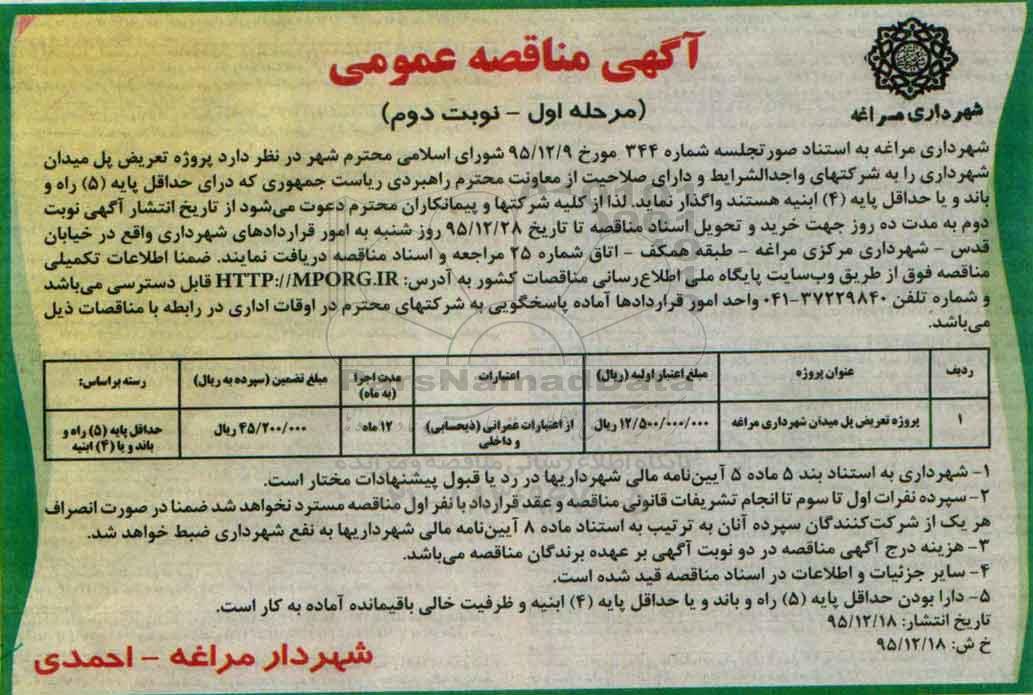 آگهی مناقصه عمومی
(مرحله اول - نوبت دوم)
شهرداری مراغه
شهرداری مراغه به استناد صورتجلسه شماره ۳۴۴ مورخ ۹۵/۱۲/۹ شورای اسلامی محترم شهر در نظر دارد پروژه تعریض پل میدان
شهرداری را به شرکتهای واجدالشرایط و دارای صلاحیت از معاونت محترم راهبردی ریاست جمهوری که درای حداقل پایه (۵) راه و
باند و یا حداقل پایه (۴) ابنیه هستند واگذار نماید. لذا از کلیه شرکتها و پیمانکاران محترم دعوت می‌شود از تاریخ انتشار آگهی نوبت
دوم به مدت ده روز جهت خرید و تحویل اسناد مناقصه تا تاریخ ۹۵/۱۲/۲۸ روز شنبه به امور قراردادهای شهرداری واقع در خیابان
قدس - شهرداری مرکزی مراغه - طبقه همکف - اتاق شماره ۲۵ مراجعه و اسناد مناقصه دریافت نمایند. ضمنا اطلاعات تکمیلی
مناقصه فوق از طریق وب‌سایت پایگاه ملی اطلاع‌رسانی مناقصات کشور به آدرس: HTTP://MPORG.IR قابل دسترسی می‌باشد
و شماره تلفن ۳۷۲۲۹۸۴۰-۰۴۱ واحد امور قراردادها آماده پاسخگویی به شرکتهای محترم در اوقات اداری در رابطه با مناقصات ذیل
می‌باشد.
ردیف عنوان پروژه مبلغ اعتبار اولیه (ریال) اعتبارات مدت اجرا (به ماه) مبلغ تضمین (سپرده به ریال) رسته براساس:
۱ پروژه تعریض پل میدان شهرداری مراغه ۱۲/۵۰۰/۰۰۰/۰۰۰ ریال از اعتبارات عمرانی (ذیحسابی) و داخلی ۱۲ ماه ۴۵/۲۰۰/۰۰۰ ریال حداقل پایه (۵) راه و باند و یا (۴) ابنیه
ParsNamadData
۱- شهرداری به استناد بند ۵ ماده ۵ آیین‌نامه مالی شهرداریها در رد یا قبول پیشنهادات مختار است.
۲- سپرده نفرات اول تا سوم تا انجام تشریفات قانونی مناقصه و عقد قرارداد با نفر اول مناقصه مسترد نخواهد شد ضمنا در صورت انصراف
هر یک از شرکت‌کنندگان سپرده آنان به ترتیب به استناد ماده ۸ آیین‌نامه مالی شهرداریها به نفع شهرداری ضبط خواهد شد.
۳- هزینه درج آگهی مناقصه در دو نوبت آگهی بر عهده برندگان مناقصه می‌باشد.
۴- سایر جزئیات و اطلاعات در اسناد مناقصه قید شده است.
۵- دارا بودن حداقل پایه (۵) راه و باند و یا حداقل پایه (۴) ابنیه و ظرفیت خالی باقیمانده آماده به کار است.
تاریخ انتشار: ۹۵/۱۲/۱۸
خ ش: ۹۵/۱۲/۱۸
شهردار مراغه - احمدی